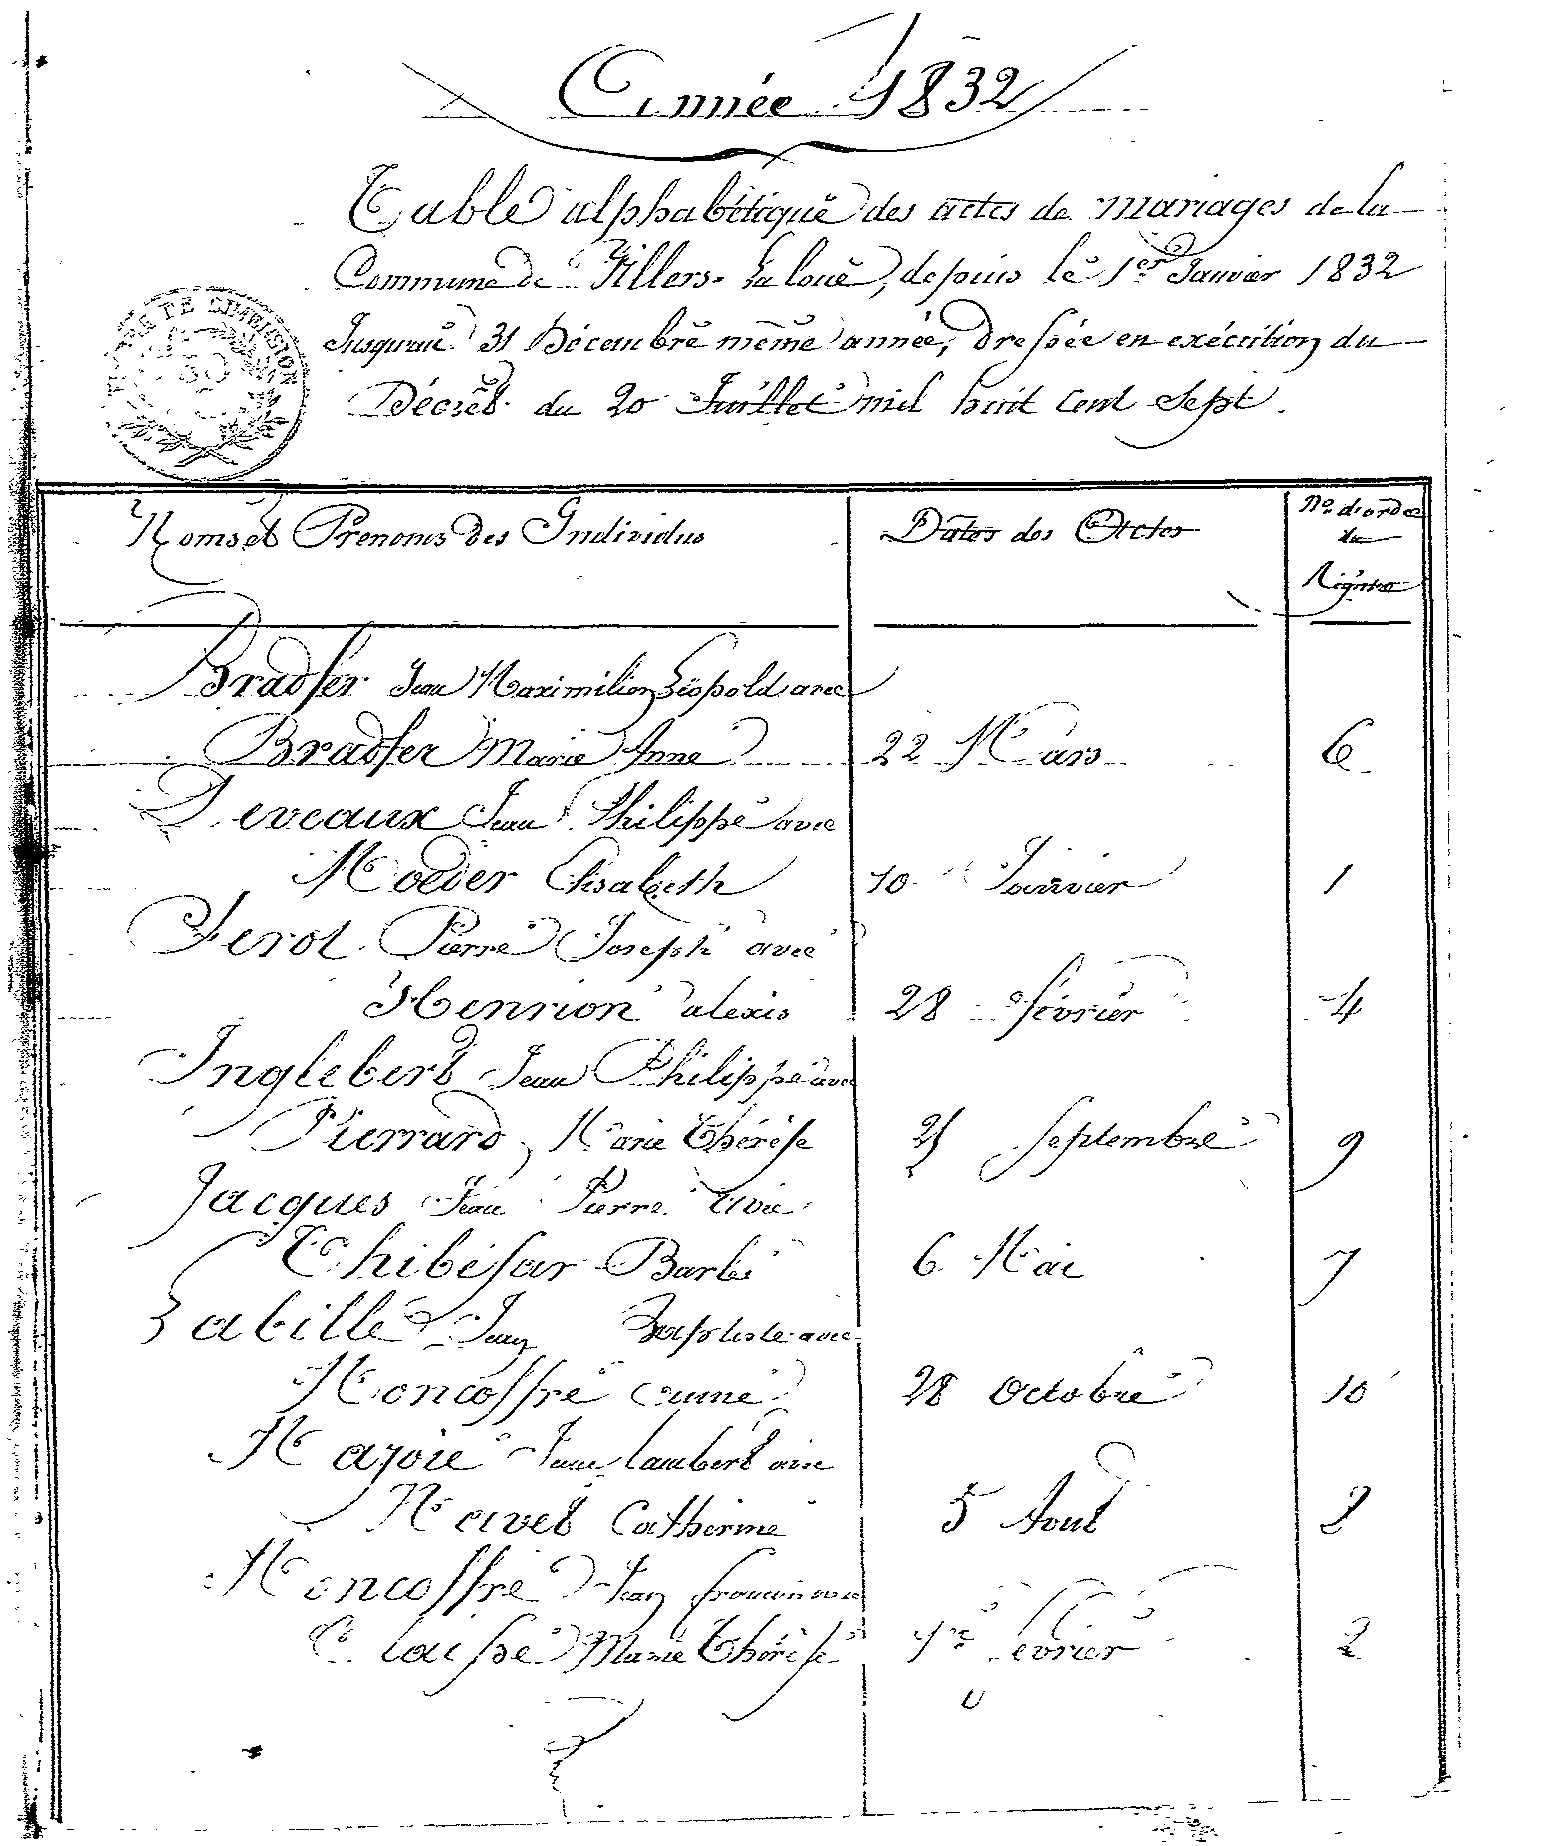 Année 1832
Table alphabétique des actes de mariages de la
Commune de Villers-La loue, depuis le 1er Janvier 1832
Jusqu'au 31 Décembre même année, dressée en exécution du
Décret du 20 Juillet mil huit cent sept.
TIMBRE DE DIMENSION
Noms et Prenoms des Individus
Dates des Actes
Nos d'ordre
du
Régistre
Bradfer Jean Maximilien Léopold avec
Bradfer Marie Anne 22 Mars 6
Deveaux Jean Philippe avec
Moeder Elisabeth 10 Janvier 1
Ferot Pierre Joseph avec
Henrion alexis 28 février 4
Inglebert Jean Philippe avec
Pierrard Marie Thérèse 25 Septembre 9
Jacques Jean Pierre avec
Thibésar Barbe 6 Mai 7
Labille Jean Baptiste avec
Moncoffre 28 Octobre 10
Majoie Jean Lambert avec
Navet Catherine 5 Aout 8
Moncoffre Jean francois avec
Claisse Marie Thérèse 1er fevrier 2